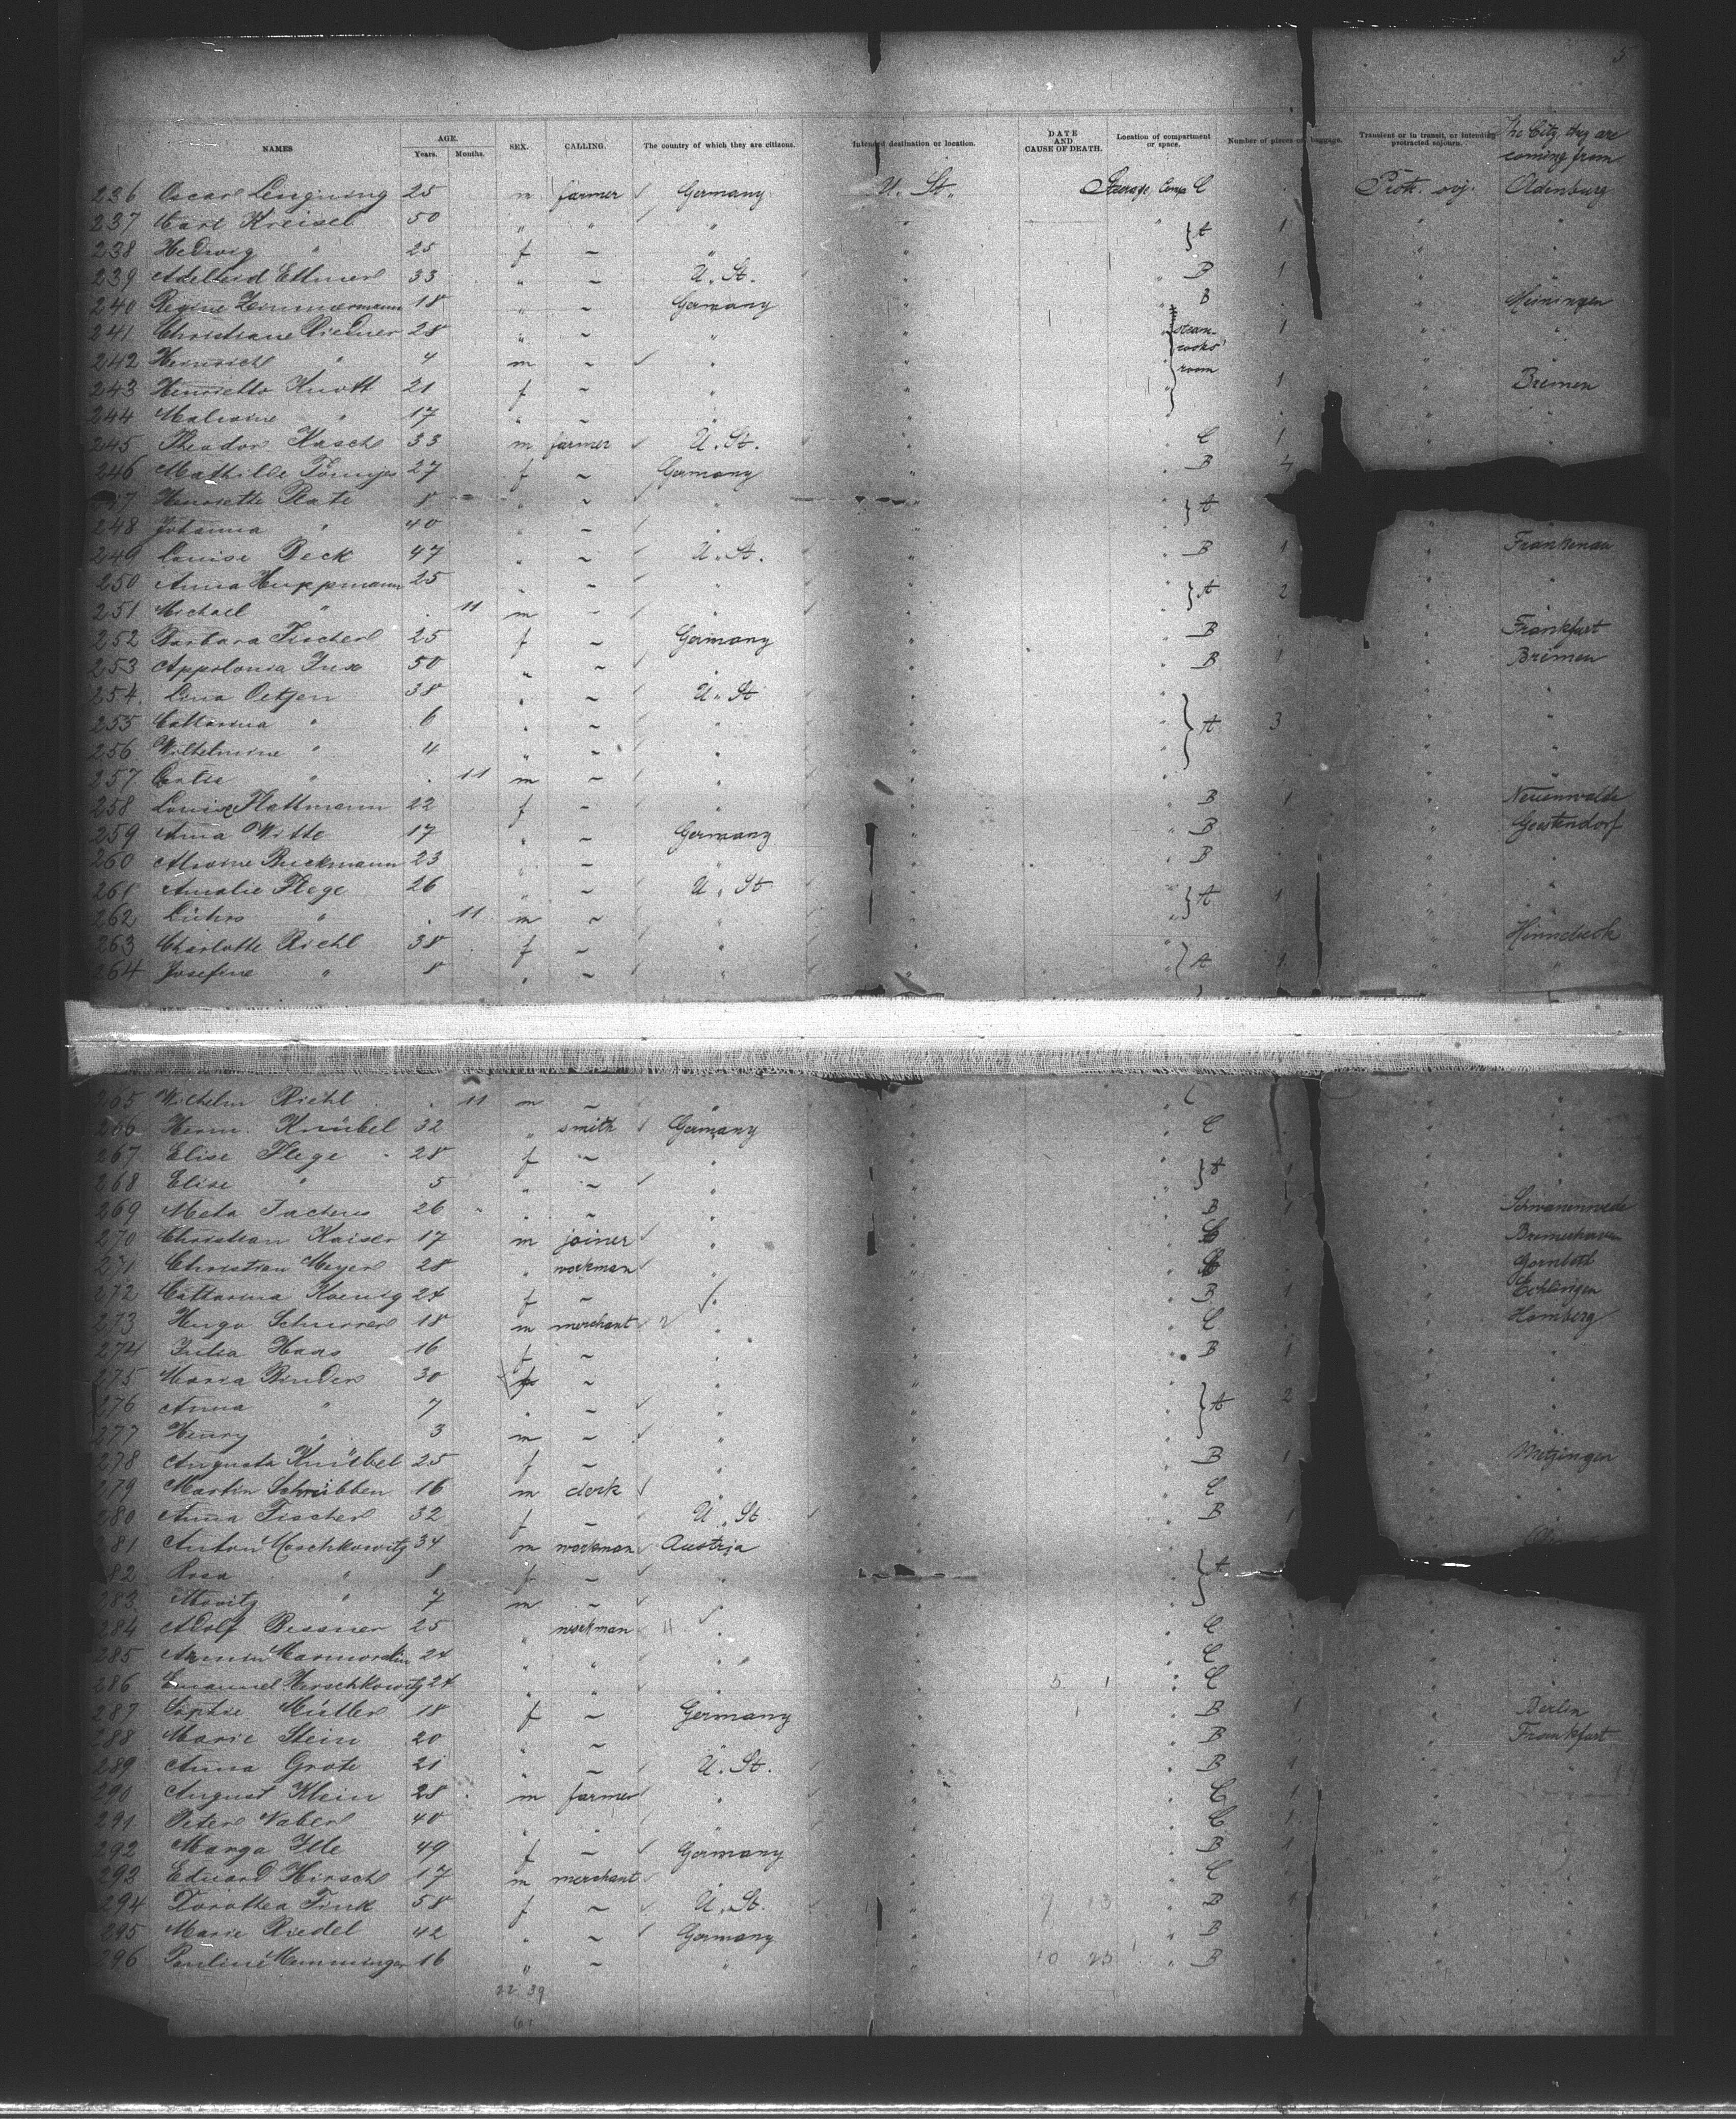 5
NAMES AGE. Years. Months. SEX. CALLING. The country of which they are citizens. Intended destination or location. DATE AND CAUSE OF DEATH. Location of compartment or space. Number of pieces of baggage. Transient or in transit, or intending protracted sojourn. The City, they are coming from
236 Oscar 25 m farmer Germany U. St. Steerage, Comp C Protr. soj. Oldenburg
237 Carl Kreisel 50 " " " " } A 1 "
238 Hedwig " 25 f ~ " "
239 Adelheid Ettmer 33 " ~ U. St. " B 1 "
240 Regine Zimmermann 18 " ~ Germany " B " Meiningen
241 Christiane Riedner 28 " ~ " " steam- 1 "
cooks'
242 Heinrich " 4 m ~ " " room "
243 Henriette Knott 21 f ~ " " 1 " Bremen
244 Malwine " 17 " ~ " " "
245 Theodor Kasch 33 m farmer U. St. " C 1 "
246 Mathilde Tönnjes 27 f ~ Germany " B 4
247 Henriette Plate 8 " ~ " " } A
248 Johanna " 40 " ~ " "
249 Louise Beck 47 " ~ U. St. " B 1 " Frankenau
250 Anna Huppmann 25 " ~ " " } A 2 "
251 Michael " 11 m ~ " " "
252 Barbara Fischer 25 f ~ Germany " B " Frankfurt
253 Appolonia Fux 50 " ~ " " B 1 " Bremen
254 Lina Oetjen 38 " ~ U. St " "
255 Catharina " 6 " ~ " " } A 3 "
256 Wilhelmine " 4 " ~ " " "
257 " 11 m ~ " " "
258 Louise Hattmann 22 f ~ " " B 1 " Neuenwalde
259 Anna Witte 17 " ~ Germany " B " Geestendorf
260 Alwine Buckmann 23 " ~ " " B "
261 Amalie Flege 26 " ~ U. St " } A 1 "
262 Lührs " 11 m ~ " " "
263 Charlotte Riehl 38 f ~ " " " Hinnebeck
264 Josefine " 8 " ~ " " } A 1 "
265 Wilhelm Riehl 11 m ~ " " "
266 Herm. Knübel 32 " smith Germany " C "
267 Elise Flege 28 f ~ " " } A 1 "
268 Elise " 5 " ~ " " "
269 Meta 26 " ~ " " B 1 " Schwanenwede
270 Christian Kaiser 17 m joiner " " C " Bremerhaven
271 Christian Meyer 28 " workman " " C "
272 Catharina Koenig 24 f ~ " " B 1 "
273 Hugo 18 m merchant " " C " Homberg
274 Julia Haas 16 f ~ " " B 1 "
275 Maria Binder 30 f ~ " " "
276 Anna " 7 " ~ " " } A 2 "
277 Henry " 3 m ~ " " "
278 Augusta Knübel 25 f ~ " " B 1 " Metzingen
279 Martin Schribben 16 m clerk " " C "
280 Anna Fischer 32 f ~ U. St " B 1 "
281 Anton Moschkowitz 34 m workman Austria "
282 Rosa " 8 f ~ " " } A
283 Moritz " 7 m ~ " "
284 Adolf Bessner 25 " workman " " C "
285 Armin 24 " " " " C "
286 Emanuel Herschkowitz 24 " " " " 5 1 C "
287 Sophie Müller 18 f ~ Germany " B 1 " Berlin
288 Marie Stein 20 " ~ " " B " Frankfurt
289 Anna Grote 21 " ~ U. St. " B 1 "
290 August Klein 28 m farmer " " C 1 "
291 Peter Naber 40 " " " " C 1 "
292 Marga Ille 49 f ~ Germany " B 1 "
293 Eduard Hirsch 17 m merchant " " C "
294 Dorothea Fink 58 f ~ U. St. " 9 13 B 1 "
295 Marie Riedel 42 " ~ Germany " B "
296 Pauline Memminger 16 " ~ " " 10 25 B "
22 39
61